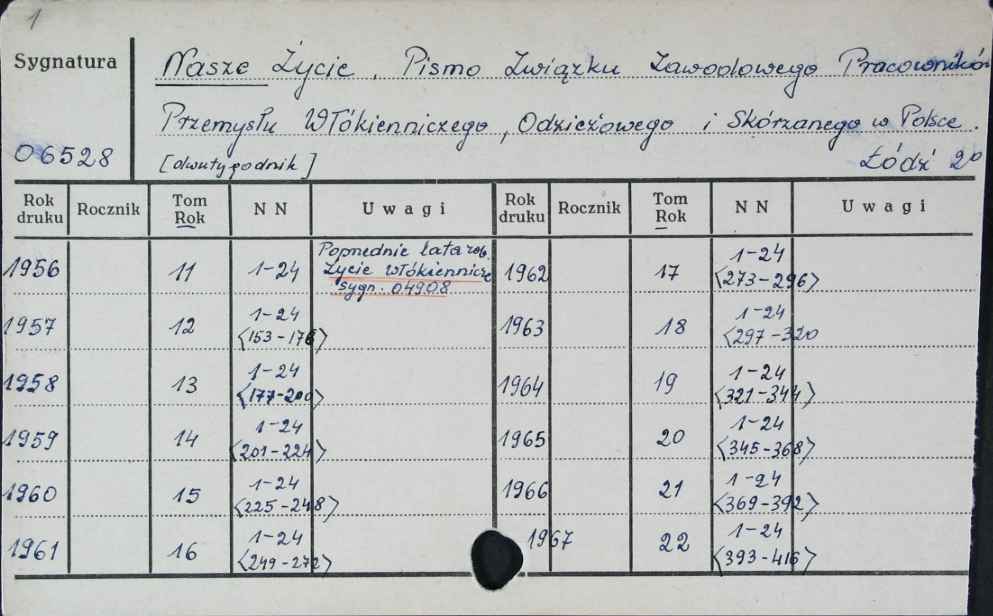 1
Sygnatura
Nasze Życie, Pismo Związku Zawodowego Pracowników
Przemysłu Włókienniczego, Odzieżowego i Skórzanego w Polsce.
06528
[dwutygodnik] Łódź 2°
Rok druku Rocznik Tom Rok NN Uwagi Rok druku Rocznik Tom Rok NN Uwagi
1956 11 1-24 Poprzednie lata zob. Życie włókiennicze sygn. 04908 1962 17 1-24 <273-296>
1957 12 1-24 <153-176> 1963 18 1-24 <297-320
1958 13 1-24 <177-200> 1964 19 1-24 <321-344>
1959 14 1-24 <201-224> 1965 20 1-24 <345-368>
1960 15 1-24 <225-248> 1966 21 1-24 <369-392>
1961 16 1-24 <249-272> 1967 22 1-24 <393-416>